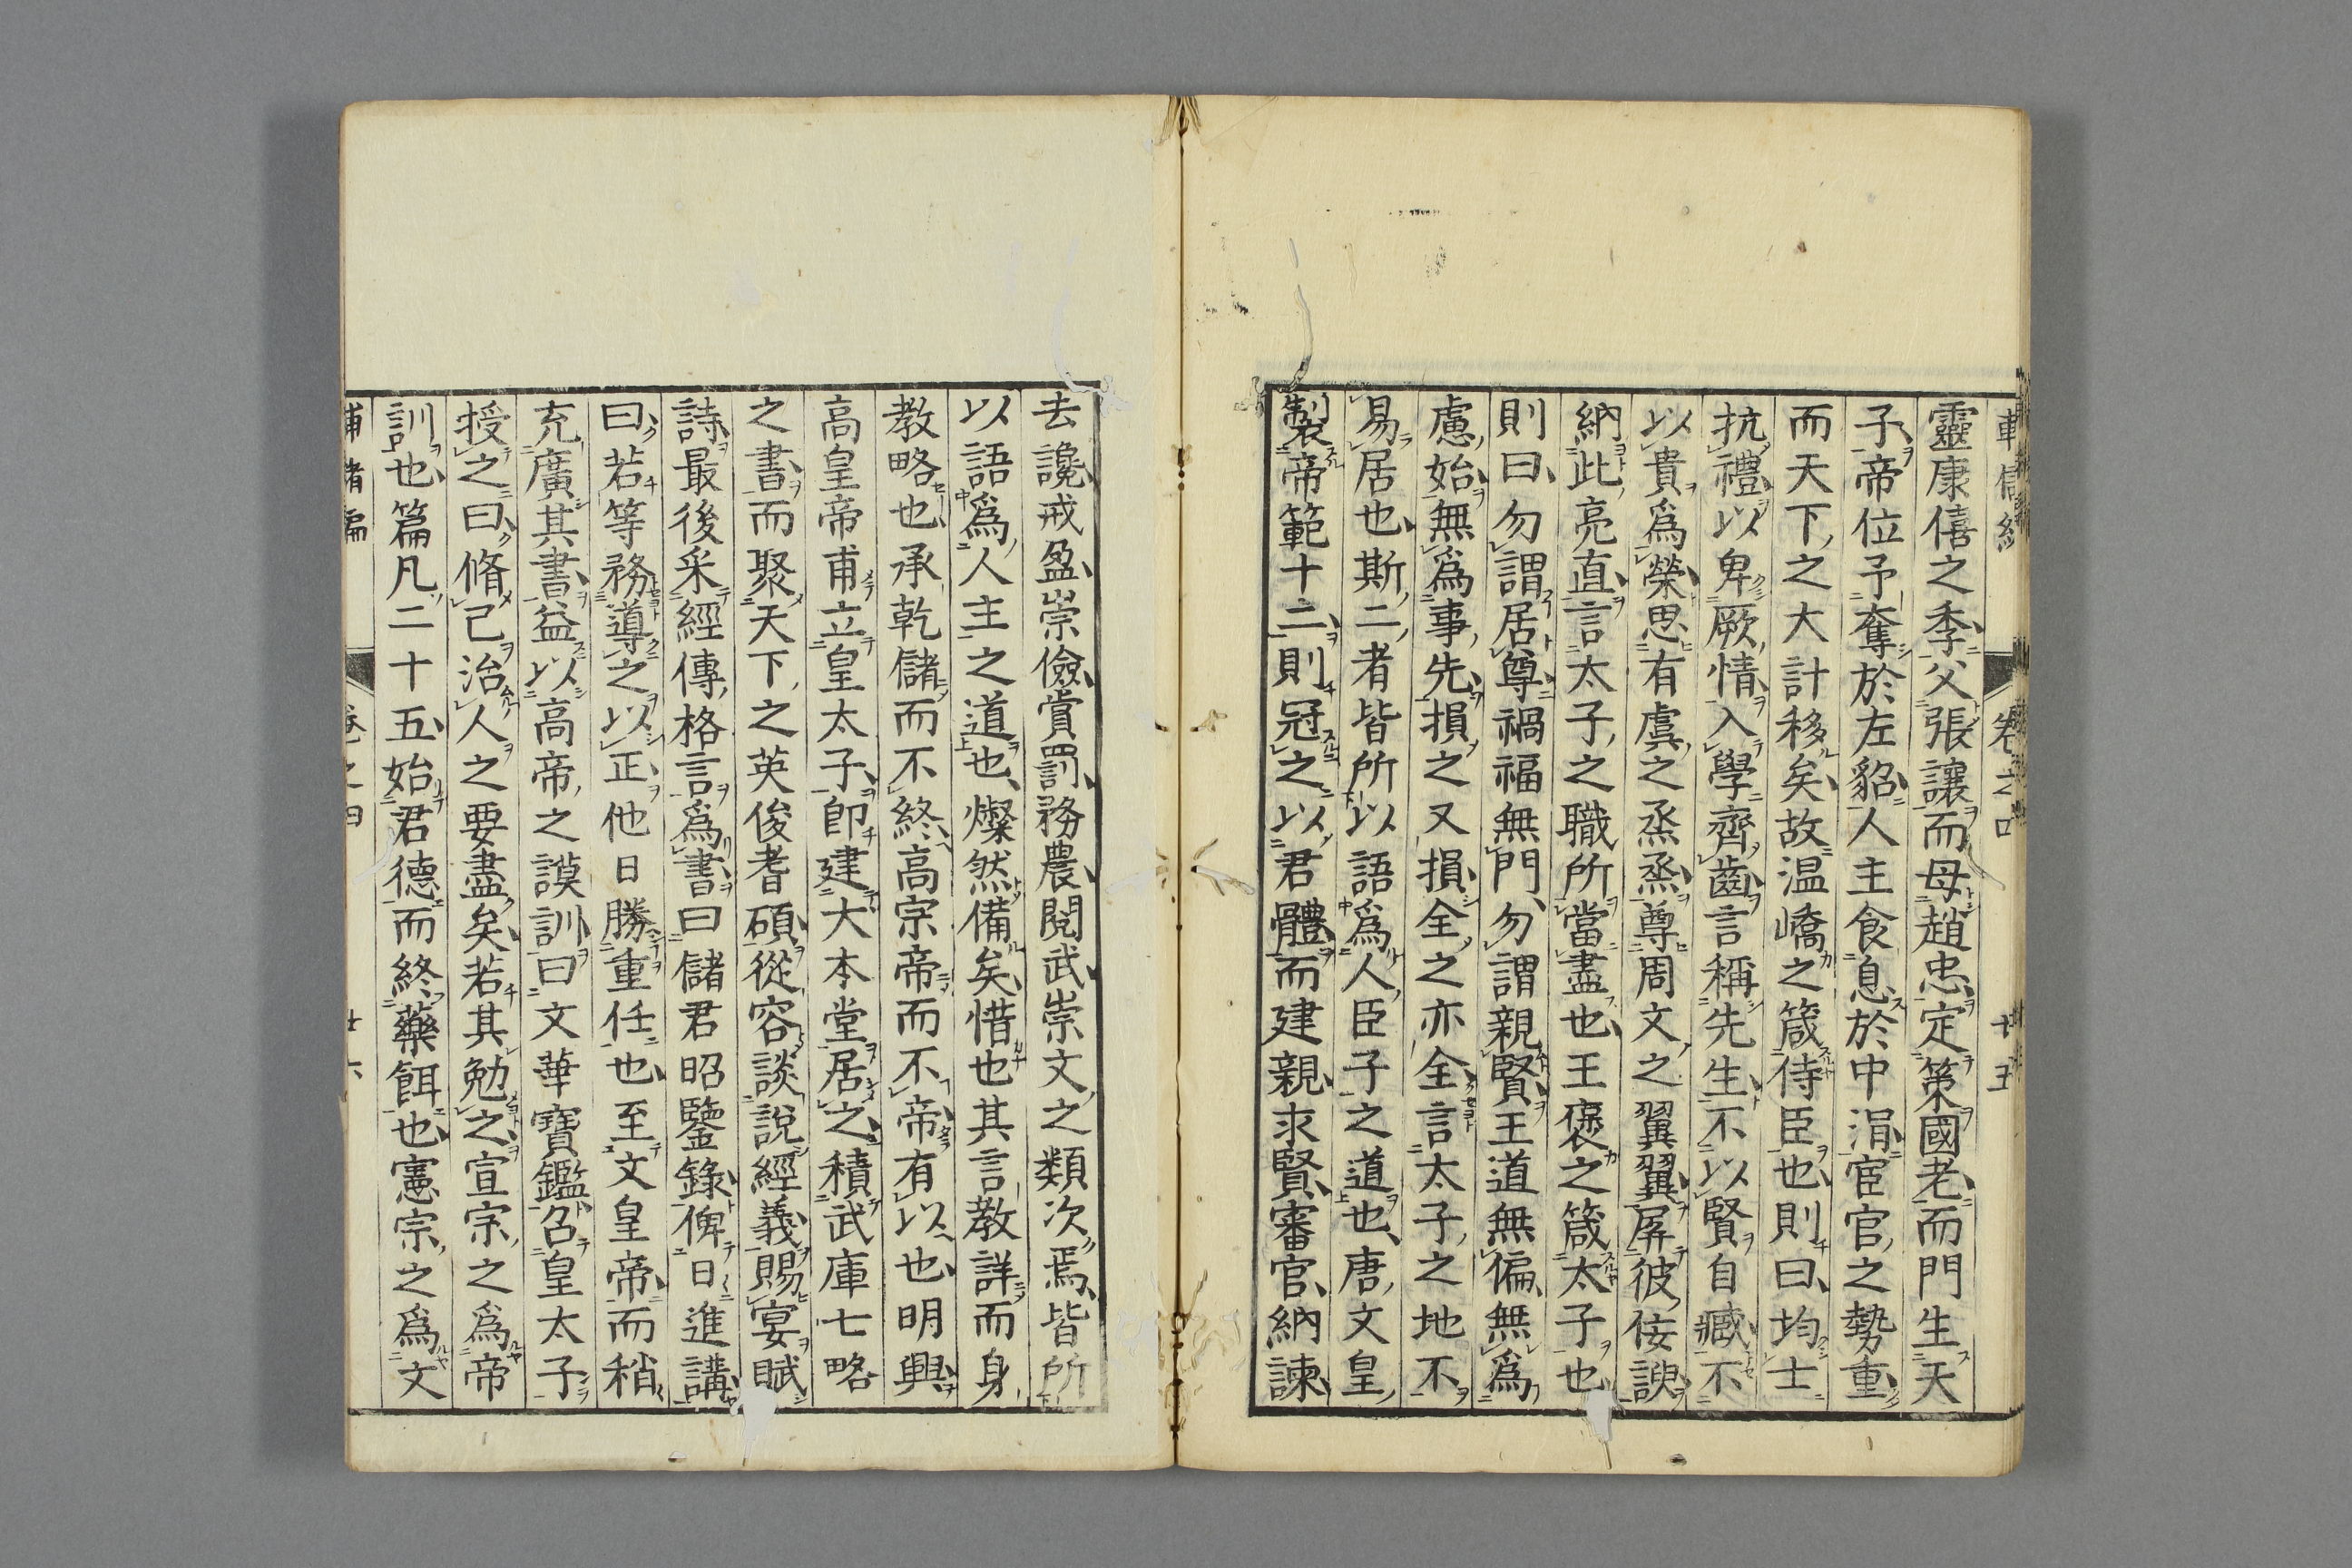 靈康僖之季父張讓而母趙忠定策國老而門生天
子帝位予奪於左貂人主食息於中涓宦官之勢重
而天下之大計移矣故温嶠之箴侍臣也則曰均士
抗禮以卑厥情入學齊齒言稱先生不以賢自臧不
以貴爲榮思有虞之烝烝尊周文之翼翼屏彼佞諛
納此亮直言太子之職所當盡也王褒之箴太子也
則曰勿謂居尊禍福無門勿謂親賢王道無偏無爲
慮始無爲事先損之又損全之亦全言太子之地不
易居也斯二者皆所以語爲人臣子之道也唐文皇
製帝範十二則冠之以君體而建親求賢審官納諫
去讒戒盈崇儉賞罰務農閱武崇文之類次焉皆所
以語爲人主之道也燦然備矣惜也其言教詳而身
教略也承乾儲而不終高宗帝而不帝有以也明興
高皇帝甫立皇太子卽建大本堂居之積武庫七略
之書而聚天下之英俊耆碩從容談說經義賜宴賦
詩最後采經傳格言爲書曰儲君昭鑒錄俾日進講
曰若等務導之以正他日勝重任也至文皇帝而稍
充廣其書益以高帝之謨訓曰文華寶鑑召皇太子
授之曰脩己治人之要盡矣若其勉之宣宗之爲帝
訓也篇凡二十五始君德而終藥餌也憲宗之爲文